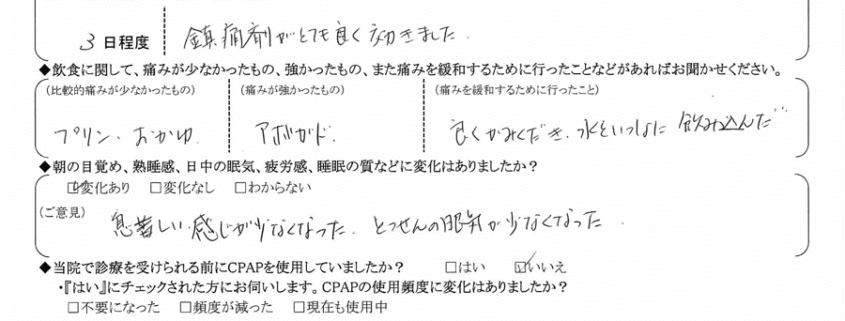 3 日程度 鎮痛剤がとても良く効きました.
◆飲食に関して、痛みが少なかったもの、強かったもの、また痛みを緩和するために行ったことなどがあればお聞かせください。
(比較的痛みが少なかったもの) (痛みが強かったもの) (痛みを緩和するために行ったこと)
プリン. おかゆ. アボガド. 良くかみくだき. 水といっしょに 飲み込んだ
◆朝の目覚め、熟睡感、日中の眠気、疲労感、睡眠の質などに変化はありましたか?
☑変化あり □変化なし □わからない
(ご意見) 息苦しい感じが少なくなった. とつぜんの眠気が少なくなった.
◆当院で診療を受けられる前にCPAPを使用していましたか? □はい ☑いいえ
・『はい』にチェックされた方にお伺いします。CPAPの使用頻度に変化はありましたか?
□不要になった □頻度が減った □現在も使用中